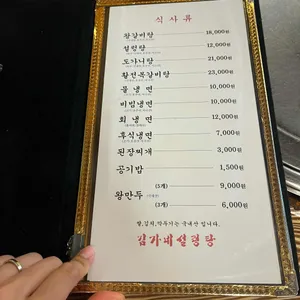 식 사 류
왕갈비탕 18,000원
설렁탕 12,000원
도가니탕 21,000원
황전복갈비탕 23,000원
물 냉 면 10,000원
비빔냉면 10,000원
회 냉 면 12,000원
후식냉면 7,000원
된장찌개 3,000원
공기밥 1,500원
왕만두
(5개) 9,000원
(3개) 6,000원
쌀, 김치, 깍두기는 국내산 입니다.
김가네설렁탕